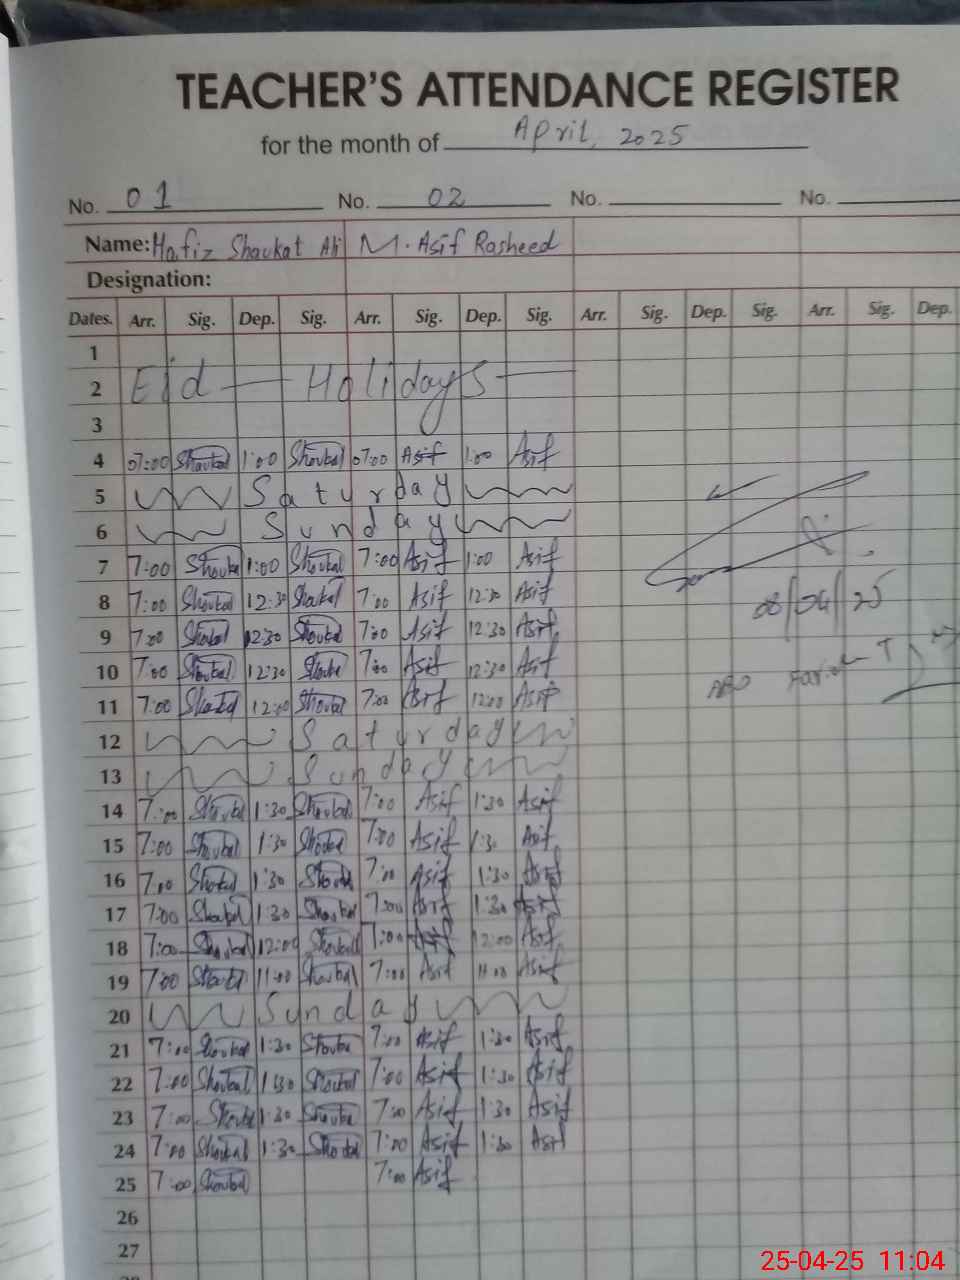 TEACHER'S ATTENDANCE REGISTER
for the month of April, 2025
No. 01 No. 02 No. No.
Name: Hafiz Shaukat Ali M. Asif Rasheed
Designation:
Dates. Arr. Sig. Dep. Sig. Arr. Sig. Dep. Sig. Arr. Sig. Dep. Sig. Arr. Sig. Dep.
1
2 Eid Holidays
3
4 07:00 Shaukat 1:00 Shoukat 07:00 Asif 1:00 Asif
5 Saturday
6 Sunday
7 7:00 Shoukat 1:00 Shoukat 7:00 Asif 1:00 Asif
8 7:00 Shoukat 12:30 Shoukat 7:00 Asif 12:30 Asif
08/04/25
9 7:00 Shoukat 12:30 Shoukat 7:00 Asif 12:30 Asif
10 7:00 Shoukat 12:30 Shoukat 7:00 Asif 12:30 Asif
11 7:00 Shoukat 12:00 Shoukat 7:00 Asif 12:00 Asif
12 Saturday
13 Sunday
14 7:00 Shoukat 1:30 Shoukat 7:00 Asif 1:30 Asif
15 7:00 Shoukat 1:30 Shoukat 7:00 Asif 1:30 Asif
16 7:00 Shoukat 1:30 Shoukat 7:00 Asif 1:30 Asif
17 7:00 Shoukat 1:30 Shoukat 7:00 Asif 1:30 Asif
18 7:00 Shoukat 12:00 Shoukat 7:00 Asif 12:00 Asif
19 7:00 Shoukat 11:00 Shoukat 7:00 Asif 11:00 Asif
20 Sunday
21 7:00 Shoukat 1:30 Shoukat 7:00 Asif 1:30 Asif
22 7:00 Shoukat 1:30 Shoukat 7:00 Asif 1:30 Asif
23 7:00 Shoukat 1:30 Shoukat 7:00 Asif 1:30 Asif
24 7:00 Shoukat 1:30 Shoukat 7:00 Asif 1:30 Asif
25 7:00 Shoukat 7:00 Asif
26
27
25-04-25 11:04